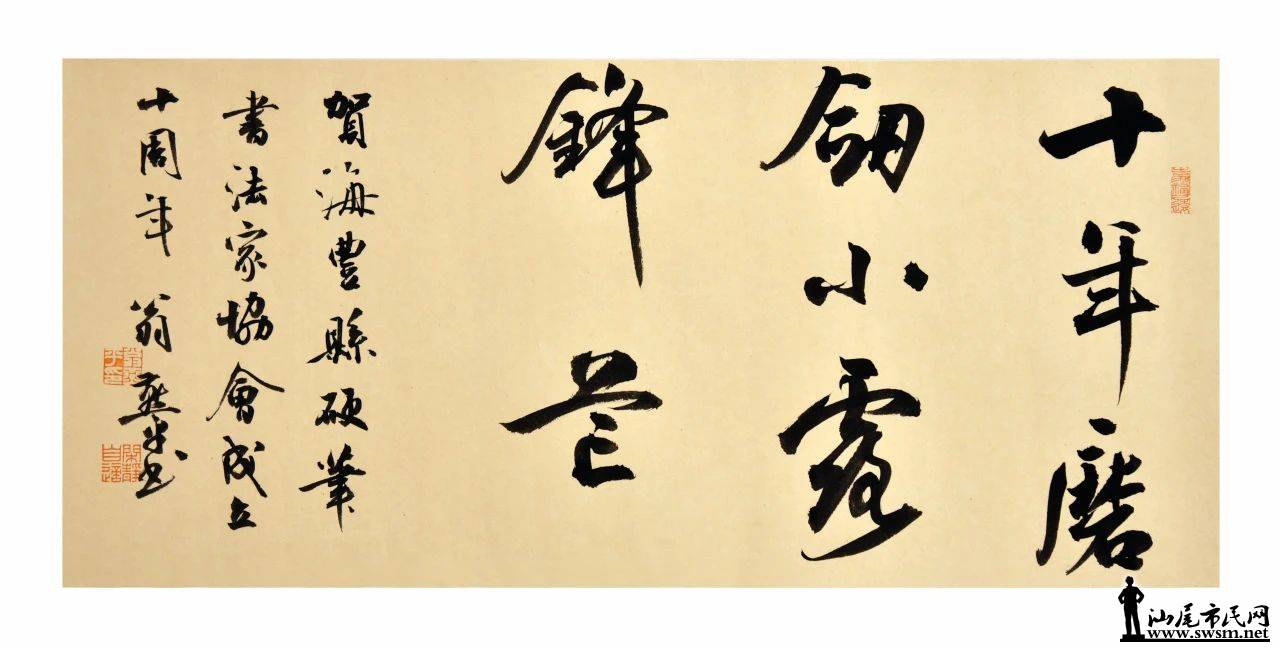 十年磨
劒小露
鋒芒
賀海豐縣硬筆
書法家協會成立
十周年 翁燕書
閑靜
自適
汕尾市民网
www.swsm.net